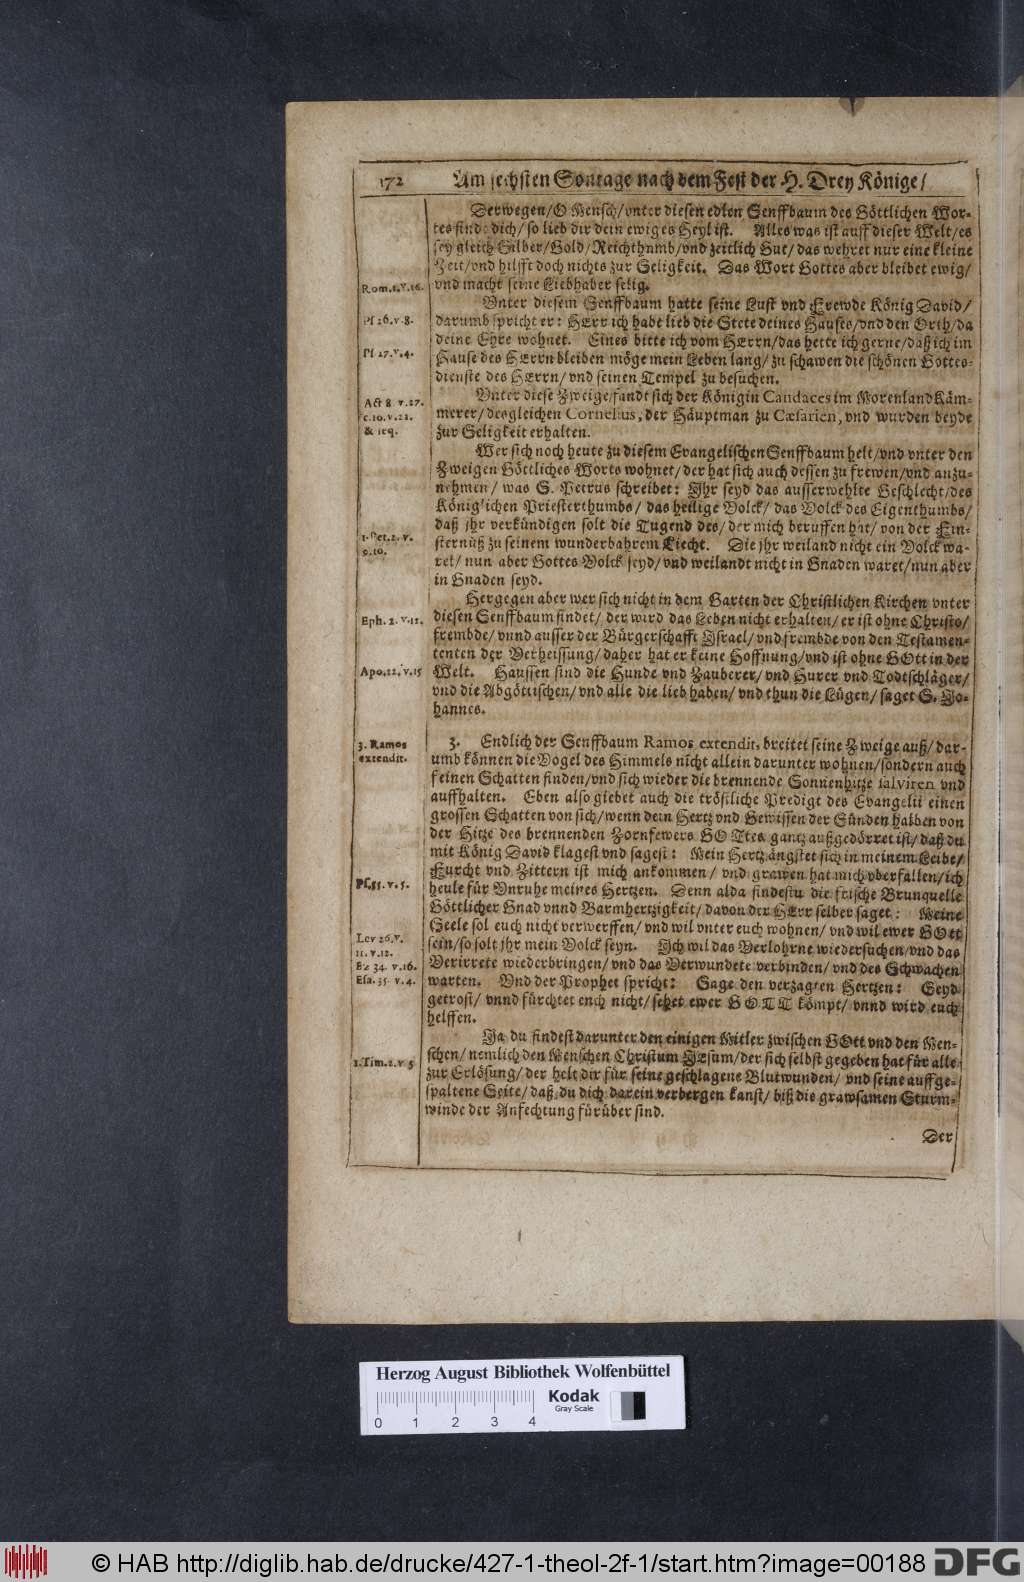 172 Am sechsten Sontage nach dem Fest der H. Drey Könige/
Derwegen/O Mensch/vnter diesen edlen Senffbaum des Göttlichen Wor-
tes finde dich/so lieb dir dein ewiges Heyl ist. Alles was ist auff dieser Welt/es
sey gleich Silber/Gold/Reichthumb/vnd zeitlich Gut/das wehret nur eine kleine
Zeit/vnd hilfft doch nichts zur Seligkeit. Das Wort Gottes aber bleibet ewig/
Rom.1.v.16.
vnd macht seine Liebhaber selig.
Vnter diesem Senffbaum hatte seine Lust vnd Frewde König David/
Ps 26.v.8.
darumb spricht er: HErr ich habe lieb die Stete deines Hauses/vnd den Orth/da
deine Ehre wohnet. Eines bitte ich vom HErrn/das hette ich gerne/daß ich im
Ps 27.v.4.
Hause des HErrn bleiben möge mein Leben lang/zu schawen die schönen Gottes-
dienste des HErrn/vnd seinen Tempel zu besuchen.
Vnter diese Zweige/fandt sich der Königin Candaces im Morenland Käm-
Act 8 v.27.
c.10.v.22.
& seq.
merer/desgleichen Cornelius, der Häuptman zu Cæsarien, vnd wurden beyde
zur Seligkeit erhalten.
Wer sich noch heute zu diesem Evangelischen Senffbaum helt/vnd vnter den
Zweigen Göttliches Worts wohnet/der hat sich auch dessen zu frewen/vnd anzu-
nehmen/was S. Petrus schreibet: Ihr seyd das ausserwehlte Geschlecht/des
Königlichen Priesterthumbs/das heilige Volck/das Volck des Eigenthumbs/
daß jhr verkündigen solt die Tugend des/der mich beruffen hat/von der Fin-
1.Pet.2.v.
9.10.
sternüß zu seinem wunderbahrem Liecht. Die jhr weiland nicht ein Volck wa-
ret/nun aber Gottes Volck seyd/vnd weilandt nicht in Gnaden waret/nun aber
in Gnaden seyd.
Hergegen aber wer sich nicht in dem Garten der Christlichen Kirchen vnter
Eph. 2.v.12.
diesen Senffbaum findet/der wird das Leben nicht erhalten/er ist ohne Christo/
frembde/vnnd ausser der Bürgerschafft Israel/vnd frembde von den Testamen-
tenten der Verheissung/daher hat er keine Hoffnung/vnd ist ohne GOtt in der
Apo.22.v.15
Welt. Haussen sind die Hunde vnd Zauberer/vnd Hurer vnd Todtschläger/
vnd die Abgöttischen/vnd alle die lieb haben/vnd thun die Lügen/saget S. Jo-
hannes.
3. Ramos
extendit.
3. Endlich der Senffbaum Ramos extendit, breitet seine Zweige auß/dar-
umb können die Vogel des Himmels nicht allein darunter wohnen/sondern auch
feinen Schatten finden/vnd sich wieder die brennende Sonnenhitze salviren vnd
auffhalten. Eben also giebet auch die tröstliche Predigt des Evangelii einen
grossen Schatten von sich/wenn dein Hertz vnd Gewissen der Sünden halben von
der Hitze des brennenden Zornfewers GOTtes gantz außgedörret ist/daß du
mit König David klagest vnd sagest: Mein Hertz ängstet sich in meinem Leibe/
Ps.55.v.5.
Furcht vnd Zittern ist mich ankommen/vnd grawen hat mich vberfallen/ich
heule für Vnruhe meines Hertzen. Denn alda findestu die frische Brunquelle
Göttlicher Gnad vnnd Barmhertzigkeit/davon der HErr selber saget: Meine
Seele sol euch nicht verwerffen/vnd wil vnter euch wohnen/vnd wil ewer GOtt
Lev 26.v.
11.v.12.
Ez 34.v.16.
Esa.35 v.4.
sein/so solt jhr mein Volck seyn. Ich wil das Verlohrne wiedersuchen/vnd das
Verirrete wiederbringen/vnd das Verwundete verbinden/vnd des Schwachen
warten. Vnd der Prophet spricht: Sage den verzagten Hertzen: Seyd
getrost/vnnd fürchtet euch nicht/sehet ewer GOTT kömpt/vnnd wird euch
helffen.
Ja du findest darunter den einigen Mitler zwischen GOtt vnd den Men-
1.Tim.2.v 5
schen/nemlich den Menschen Christum JEsum/der sich selbst gegeben hat für alle
zur Erlösung/der helt dir für seine geschlagene Blutwunden/vnd seine auffge-
spaltene Seite/daß du dich darein verbergen kanst/biß die grawsamen Sturm-
winde der Anfechtung fürüber sind.
Der
Herzog August Bibliothek Wolfenbüttel
Kodak
Gray Scale
0 1 2 3 4
© HAB http://diglib.hab.de/drucke/427-1-theol-2f-1/start.htm?image=00188 DFG